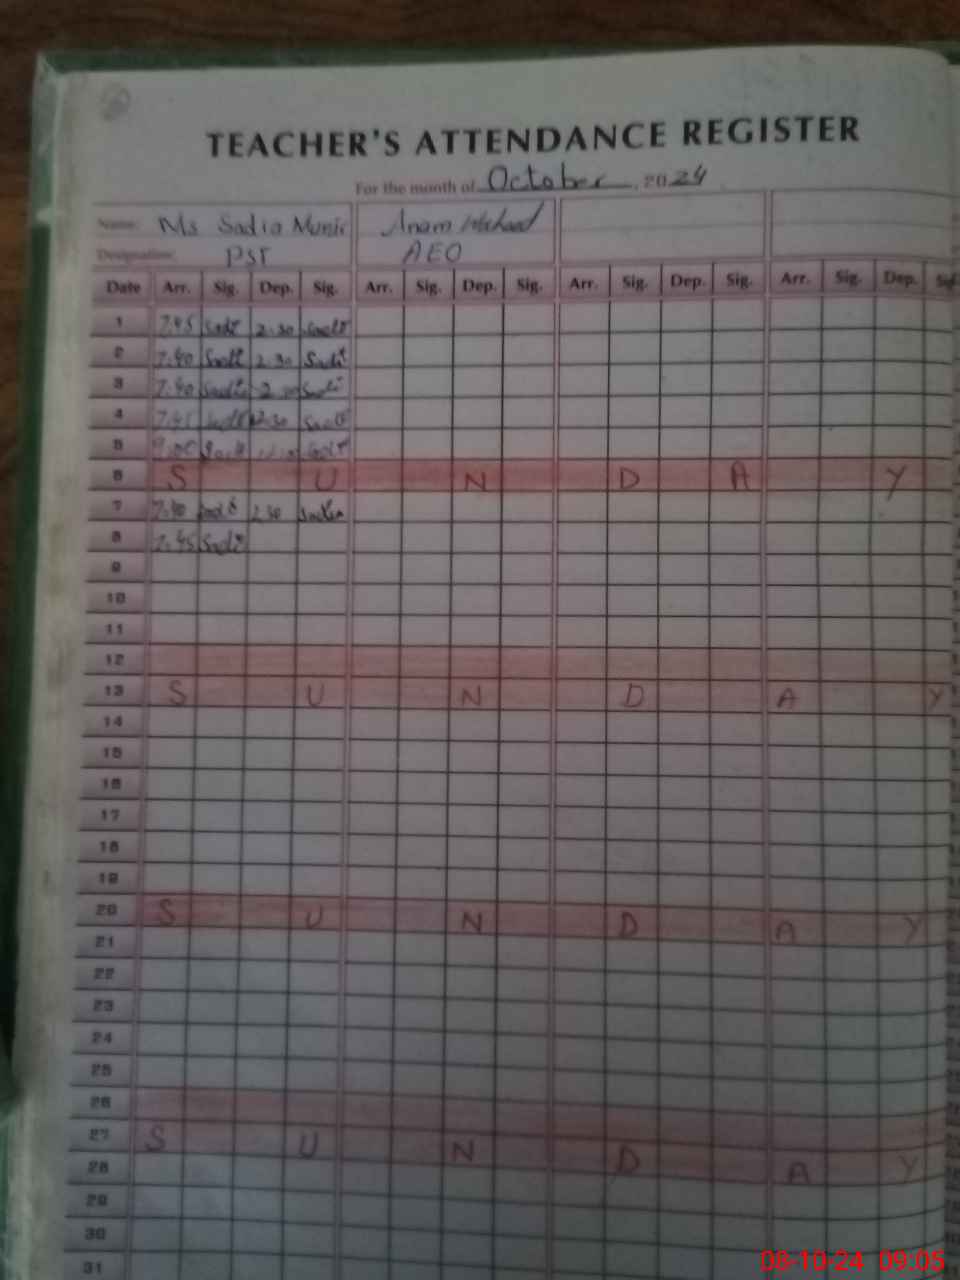 TEACHER'S ATTENDANCE REGISTER
For the month of October, 2024
Name: Ms Sadia Munir Anam
Designation: PST AEO
Date Arr. Sig. Dep. Sig. Arr. Sig. Dep. Sig. Arr. Sig. Dep. Sig. Arr. Sig. Dep. Sig
1 7.45 2.30
2 7.40 2.30 Sadi
3 7.40 Sadi
4 7.45 2.30
5 9.00
6 S U N D A Y
7 7.40 2.30 Sadia
8 7.45 Sadi
9
10
11
12
13 S U N D A Y
14
15
16
17
18
19
20 S U N D A Y
21
22
23
24
25
26
27 S U N D A Y
28
29
30
31
08-10-24 09:05